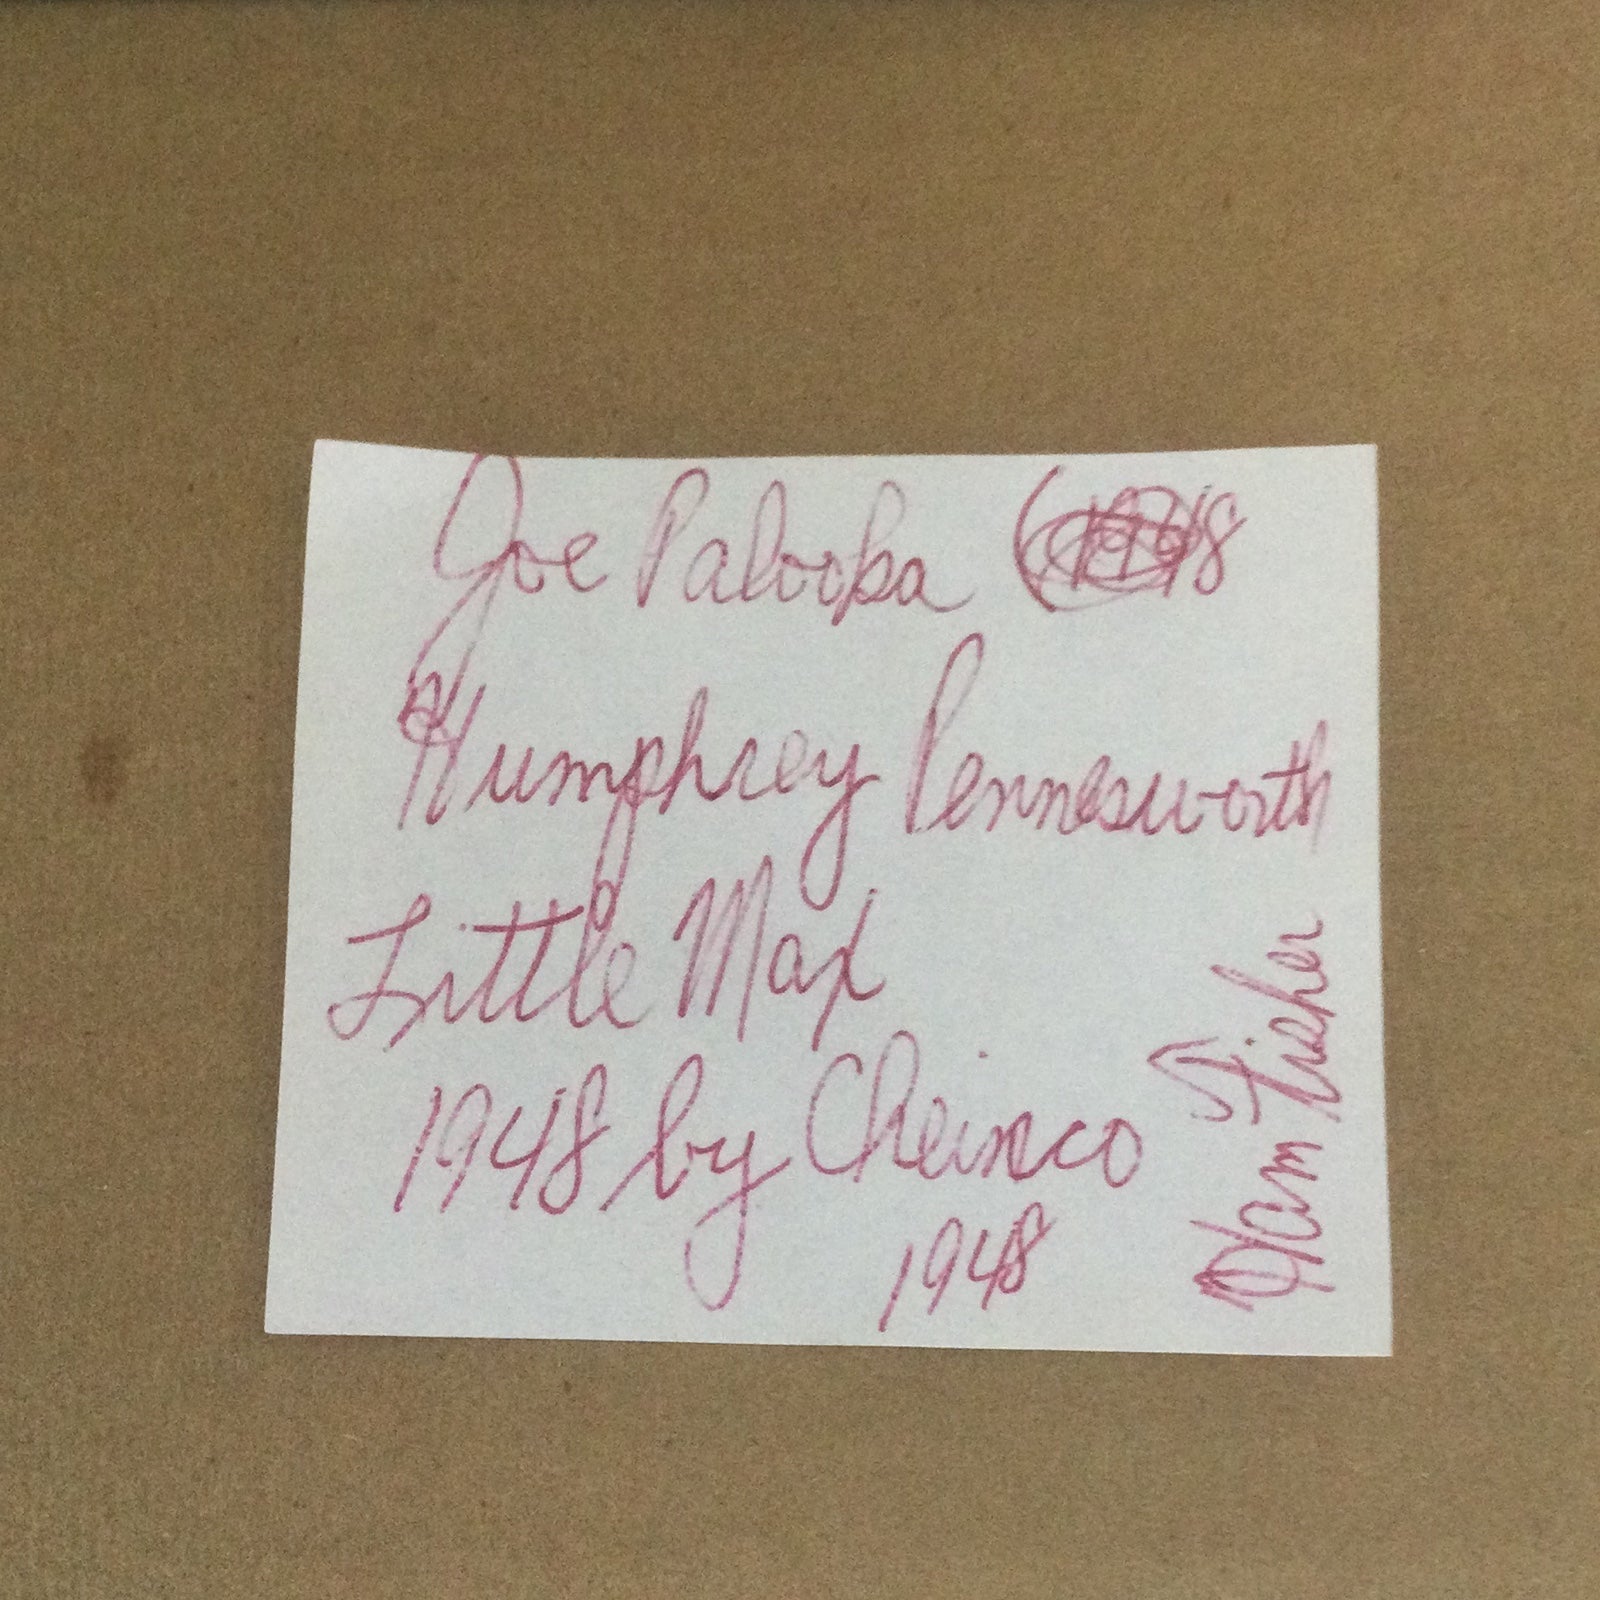 Joe Palooka (1948
Humphrey Pennesworth
Little Max
1948 by Cheinco
1948
Ham Fisher